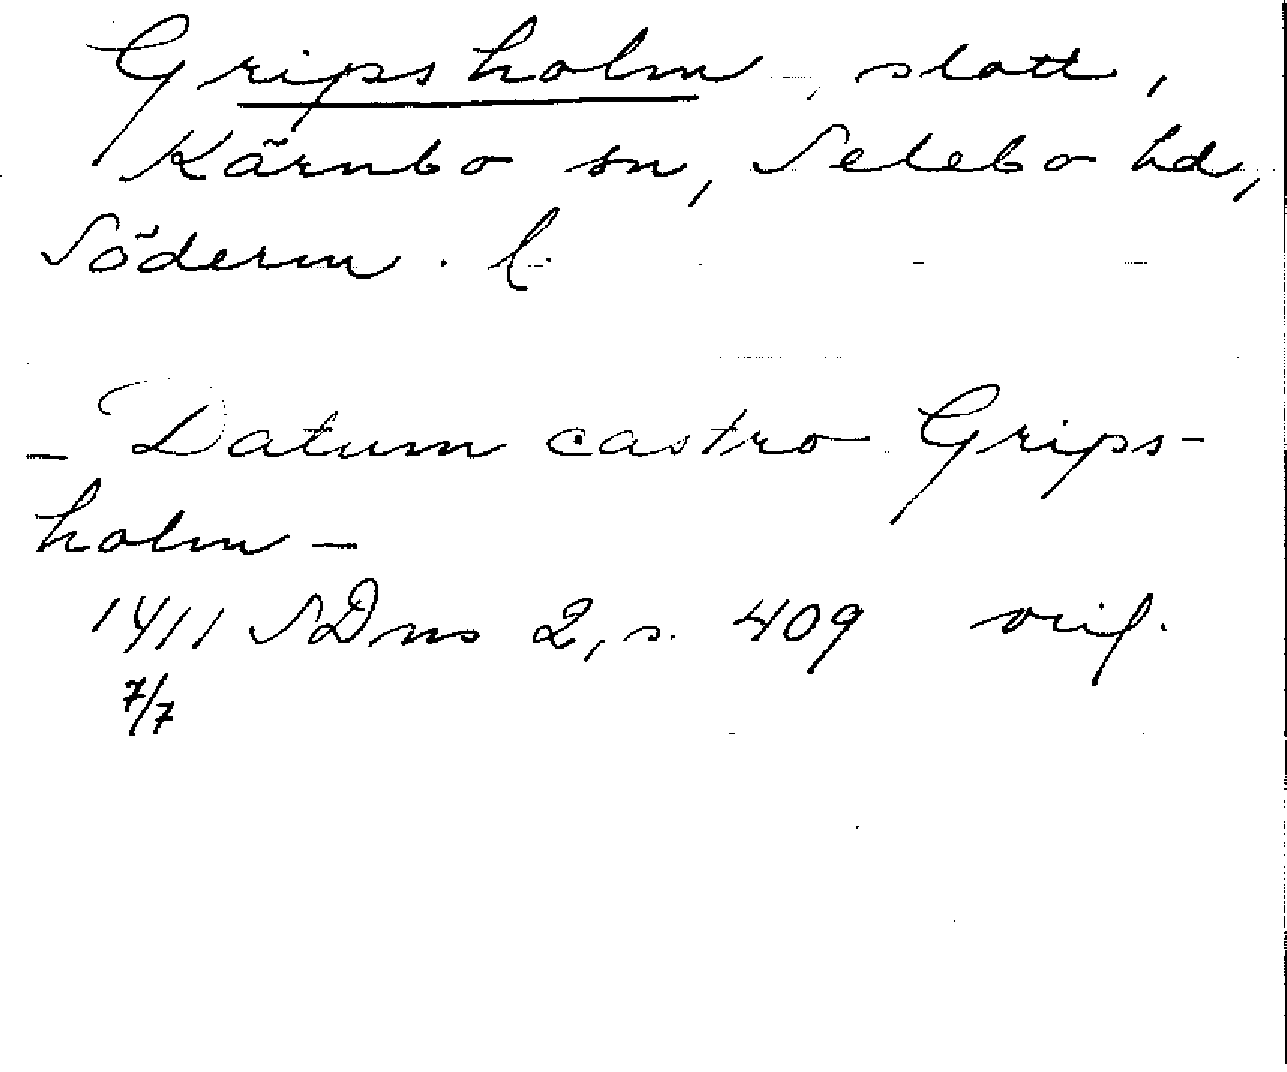 Gripsholm, slott,
Kärnbo sn, Selebo hd,
Söderm. l.
- Datum castro Grips-
holm -
1411 SDns 2, s. 409 orig.
7/7